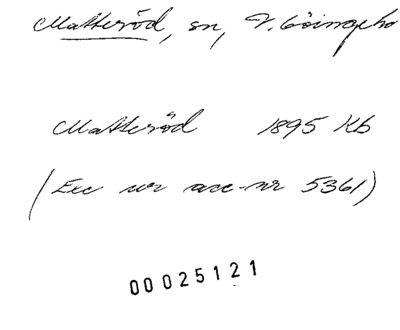 Matteröd, sn, V. Göinge ho
Matteröd 1895 Kb
(Exc ur acc-nr 5361)
00025121